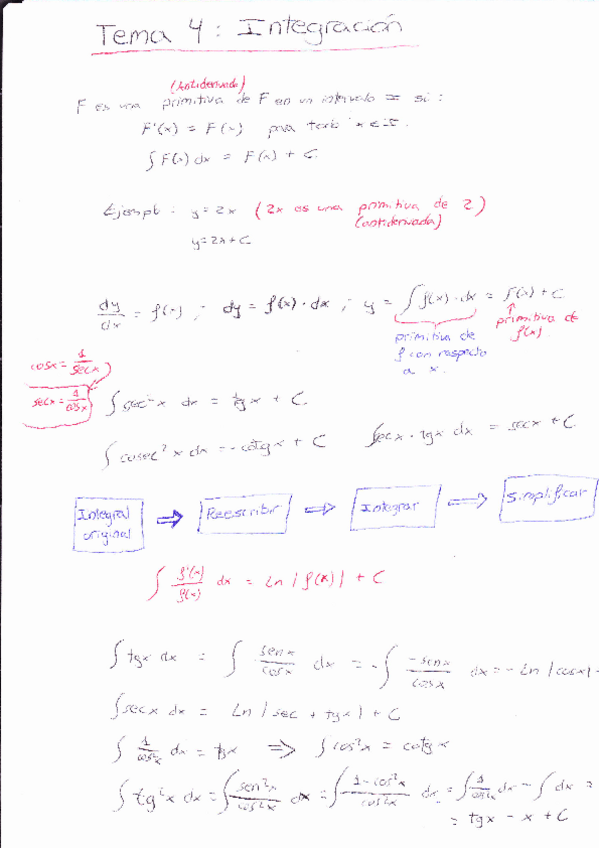 Tema 4: Integración
(Antiderivada)
F es una primitiva de F en un intervalo I si:
F'(x) = F(x) para todo x ∈ I.
∫F(x) dx = F(x) + C.
Ejempl: y = 2x (2x es una primitiva de 2)
(antiderivada)
y = 2x + C
dy/dx = f(x) ; dy = f(x) · dx ; y = ∫f(x) · dx = F(x) + C
primitiva de f con respecto a x.
primitiva de f(x).
cosx = 1/secx
secx = 1/cosx
∫sec²x dx = tgx + C.
∫cosec²x dx = -cotgx + C ∫secx · tgx dx = secx + C
Integral original ⇒ Reescribir ⇒ Integrar ⇒ Simplificar
∫ f'(x)/f(x) dx = Ln |f(x)| + C
∫tgx dx = ∫ senx/cosx dx = -∫ -senx/cosx dx = -Ln |cosx| -
∫secx dx = Ln |sec + tgx| + C
∫ 1/cos²x dx = tgx ⇒ ∫cos²x = cotgx
∫tg²x dx = ∫ sen²x/cos²x dx = ∫ 1-cos²x/cos²x dx = ∫ 1/cos²x dx - ∫ dx =
= tgx - x + C